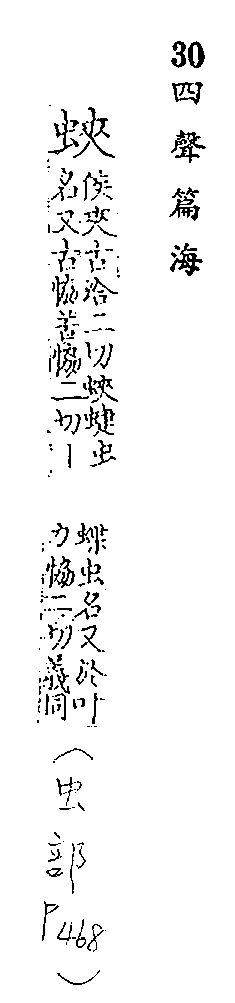 30 四聲篇海
蛺
侯夾古洽二切蛺蜨虫
名又古協苦協二切丨
蝶虫名又於叶
力協二切義同
(虫部 P468)